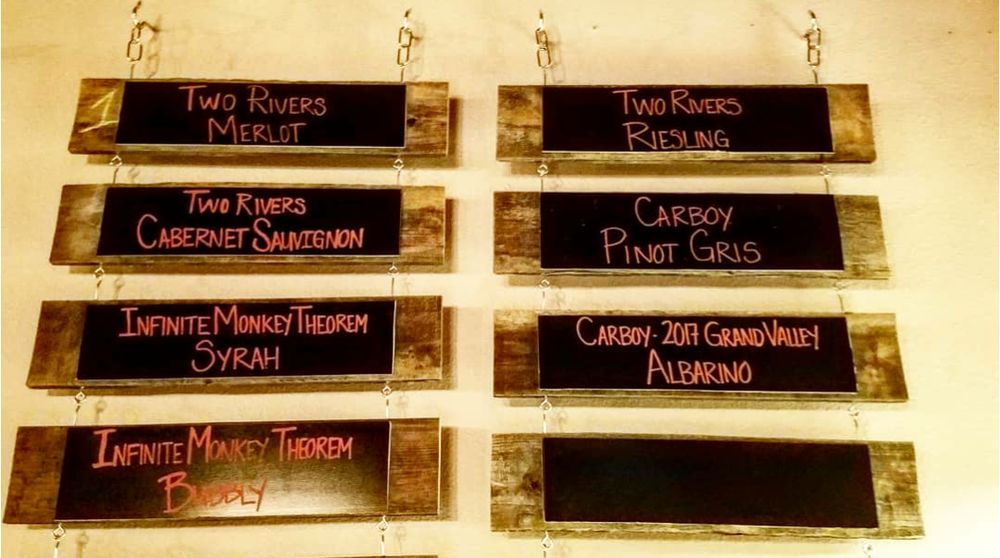 1
TWO RIVERS
MERLOT
TWO RIVERS
CABERNET SAUVIGNON
INFINITE MONKEY THEOREM
SYRAH
INFINITE MONKEY THEOREM
BUBBLY
TWO RIVERS
RIESLING
CARBOY
PINOT GRIS
CARBOY - 2017 GRAND VALLEY
ALBARINO